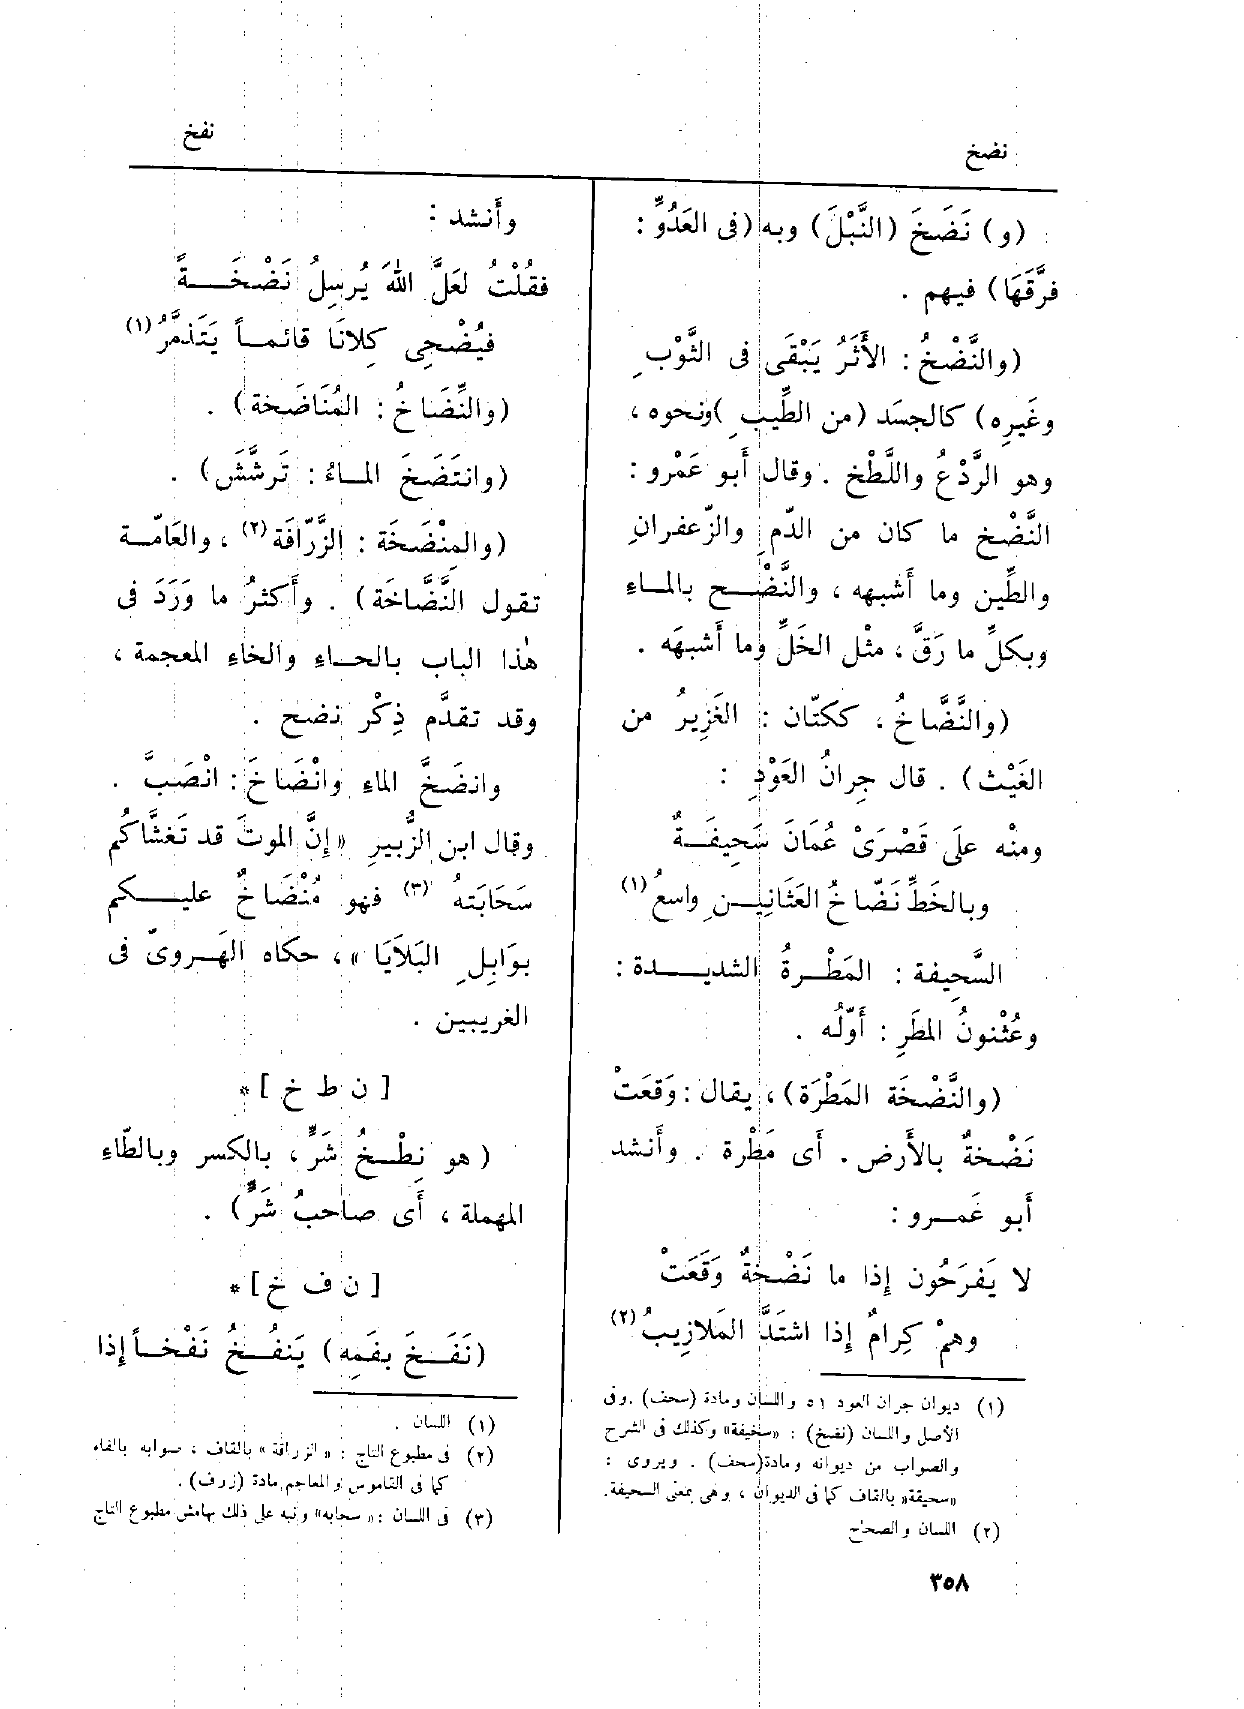 نضخ
نفخ
(و) نَضَخَ (النَّبْلَ) وبه (فى العَدُوِّ :
فرَّقَهَا) فيهم .
(والنَّضْخُ : الأَثَرُ يَبْقَى فى الثَّوْبِ
وغَيرِه) كالجسَد (من الطِّيبِ) ونحوه ،
وهو الرَّدْعُ واللَّطْخ . وقال أَبو عَمْرو :
النَّضْخ ما كان من الدّمِ والزّعفرانِ
والطِّين وما أَشبهه ، والنَّضْح بالماءِ
وبكلِّ ما رَقَّ ، مثْل الخَلِّ وما أَشبهَه .
(والنَّضَّاخُ ، ككتّان : الغَزِيرُ من
الغَيْث) . قال جِرانُ العَوْدِ :
ومنْه علَى قَصْرَىْ عُمَانَ سَحِيفَةٌ
وبالخَطِّ نَضّاخُ العَثَانِينِ واسعُ (١)
السَّحِيفة : المَطْرةُ الشديدة :
وعُثْنونُ المطَرِ : أَوّلُه .
(والنَّضْخَة المَطْرَة) ، يقال : وَقَعَتْ
نَضْخةٌ بالأَرض . أَى مَطْرة . وأَنشد
أَبو عَمرو :
لا يَفرَحُون إذا ما نَضْخةٌ وَقَعَتْ
وهمْ كِرامٌ إذا اشتَدَّ المَلازِيبُ (٢)
(١) ديوان جران العود ٥١ واللسان ومادة (سحف) . وفى
الأصل واللسان (نضخ) : «سخيفة» وكذلك فى الشرح
والصواب من ديوانه ومادة (سحف) . ويروى :
«سحيقة» بالقاف كما فى الديوان ، وهى بمعنى السحيفة.
(٢) اللسان والصحاح
وأَنشد :
فقُلْتُ لعَلَّ اللهَ يُرسِلُ نَضْخَةً
فيُضْحِى كِلانَا قائماً يَتَذمَّرُ (١)
(والنِّضَاخُ : المُنَاضَخة) .
(وانتَضَخَ الماءُ : تَرشَّشَ) .
(والمِنْضَخَة : الزَّرّافَة (٢) ، والعَامّة
تقول النَّضَّاخَة) . وأَكثرُ ما وَرَدَ فى
هٰذا الباب بالحاءِ والخاءِ المعجمة ،
وقد تقدَّم ذِكْر نضح .
وانضَخَّ الماء وانْضَاخَ : انْصَبَّ .
وقال ابن الزُّبيرِ «إنَّ الموتَ قد تَغشَّاكُم
سَحَابَتهُ (٣) فهو مُنْضَاخٌ عليكم
بوَابِلِ البَلَايَا» ، حكاه الهَروىّ فى
الغريبين .
[ ن ط خ ] *
( هو نِطْخُ شَرٍّ ، بالكسر وبالطّاءِ
المهملة ، أَى صاحبُ شَرٍّ) .
[ ن ف خ ] *
(نَفَخَ بفَمِه) يَنفُخُ نَفْخاً إذا
(١) اللسان .
(٢) فى مطبوع التاج : «الزراقة» بالقاف ، صوابه بالفاء
كما فى القاموس والمعاجم مادة (زرف) .
(٣) فى اللسان : «سحابه» ونبه على ذلك بهامش مطبوع التاج
٣٥٨